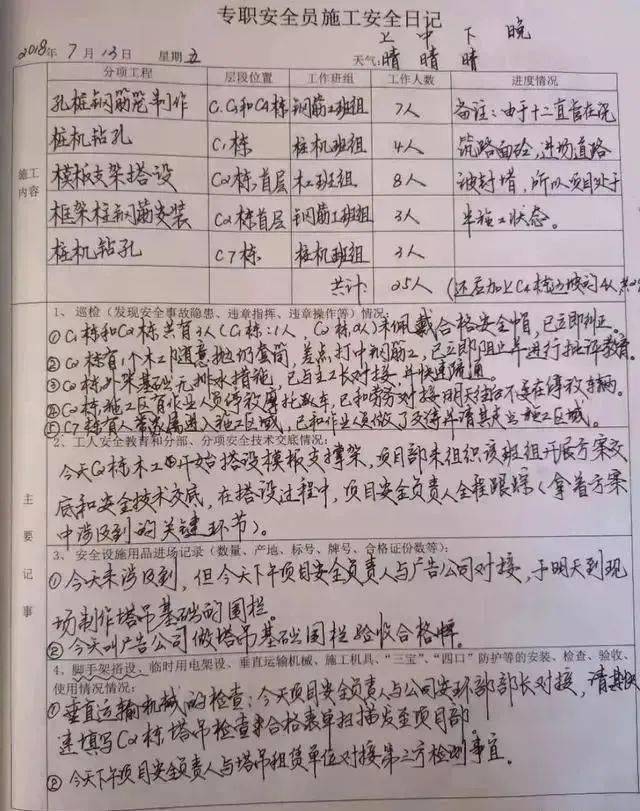 专职安全员施工安全日记
上 中 下 晚
2018年 7 月 13 日 星期五 天气: 晴 晴 晴
分项工程 层段位置 工作班组 工作人数 进度情况
孔桩钢筋笼制作 钢筋工班组 7人 备注:由于十二直管在浇
桩机钻孔 C1栋 桩机班组 4人 筑路面砼,进场道路
施工内容
模板支架搭设 C2栋首层 木工班组 8人 被封堵,所以项目处于
框架柱钢筋安装 C2栋首层 钢筋工班组 3人 半施工状态。
桩机钻孔 C7栋 桩机班组 3人
共计: 25人
主要记事
1、巡检(发现安全事故隐患、违章指挥、违章操作等)情况:
① C1栋和C2栋共有3人(C1栋:1人,C2栋2人)未佩戴合格安全帽,已立即纠正。
② C2栋有1个木工随意抛扔套筒,差点打中钢筋工,已立即阻止并进行批评教育。
③ C2栋外架基础无排水措施,已与主工长对接,并快速疏通。
④ C2栋施工区有作业人员停放摩托车,已和劳务对接明天往后不要在停放车辆。
⑤ C7栋有人带家属进入施工区域,已和作业人员做了交待并请其走出施工区域。
2、工人安全教育和分部、分项安全技术交底情况:
今天C2栋木工开始搭设模板支撑架,项目部未组织该班组开展方案交
底和安全技术交底,在搭设过程中,项目安全负责人全程跟踪(拿着方案
中涉及到的关键环节)。
3、安全设施用品进场记录(数量、产地、标号、牌号、合格证份数等):
① 今天未涉及到,但今天下午项目安全负责人与广告公司对接,于明天到现
场制作塔吊基础的围栏。
② 今天叫广告公司做塔吊基础围栏验收合格牌。
4、脚手架搭设、临时用电架设、垂直运输机械、施工机具、“三宝”、“四口”防护等的安装、检查、验收、
使用情况情况:
① 垂直运输机械的检查:今天项目安全负责人与公司安环部部长对接,请其快
速填写C2栋塔吊检查合格表单扫描发至项目部。
② 今天下午项目安全负责人与塔吊租赁单位对接第三方检测事宜。